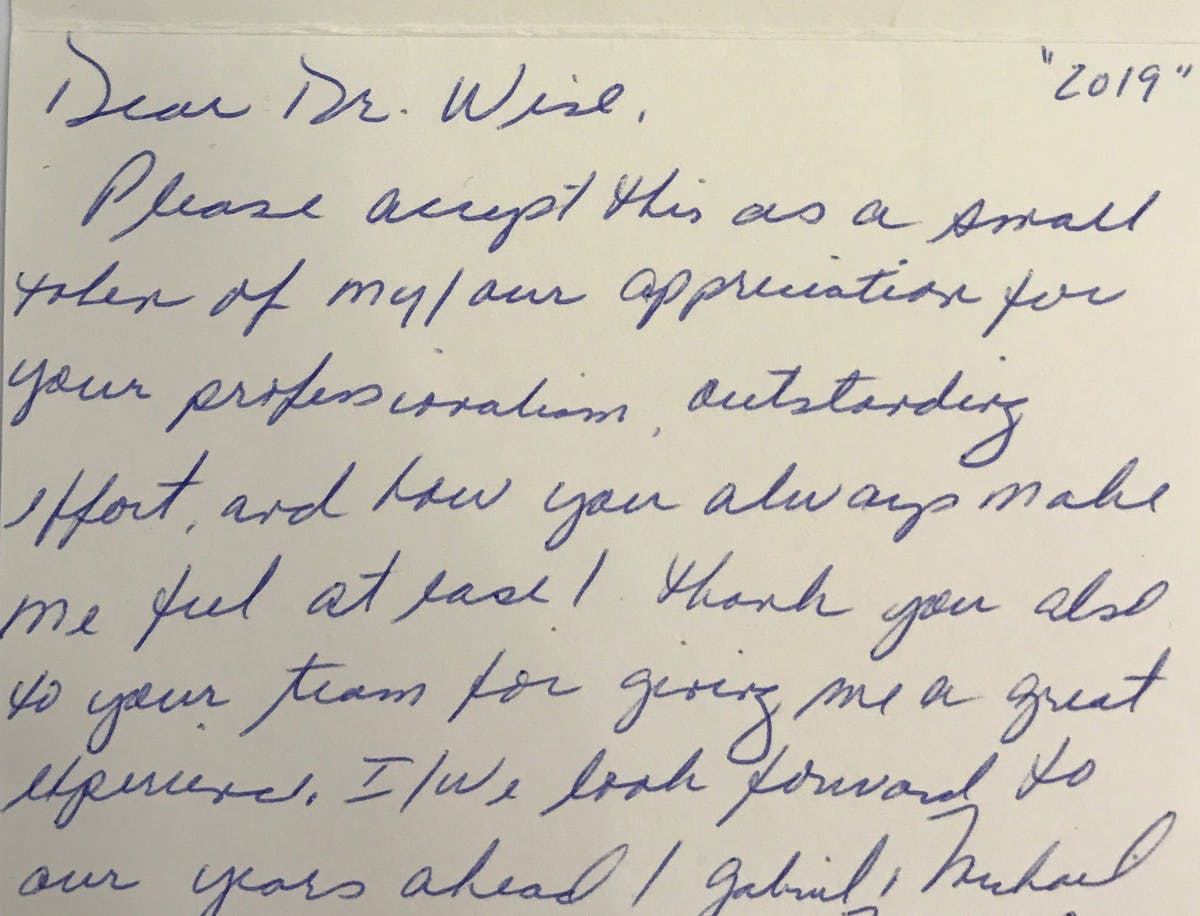 "2019"
Dear Dr. Wise,
Please accept this as a small
token of my/our appreciation for
your professionalism, outstanding
effort, and how you always make
me feel at ease! Thank you also
to your team for giving me a great
experience. I/We look forward to
our years ahead! Gabriel, Michael